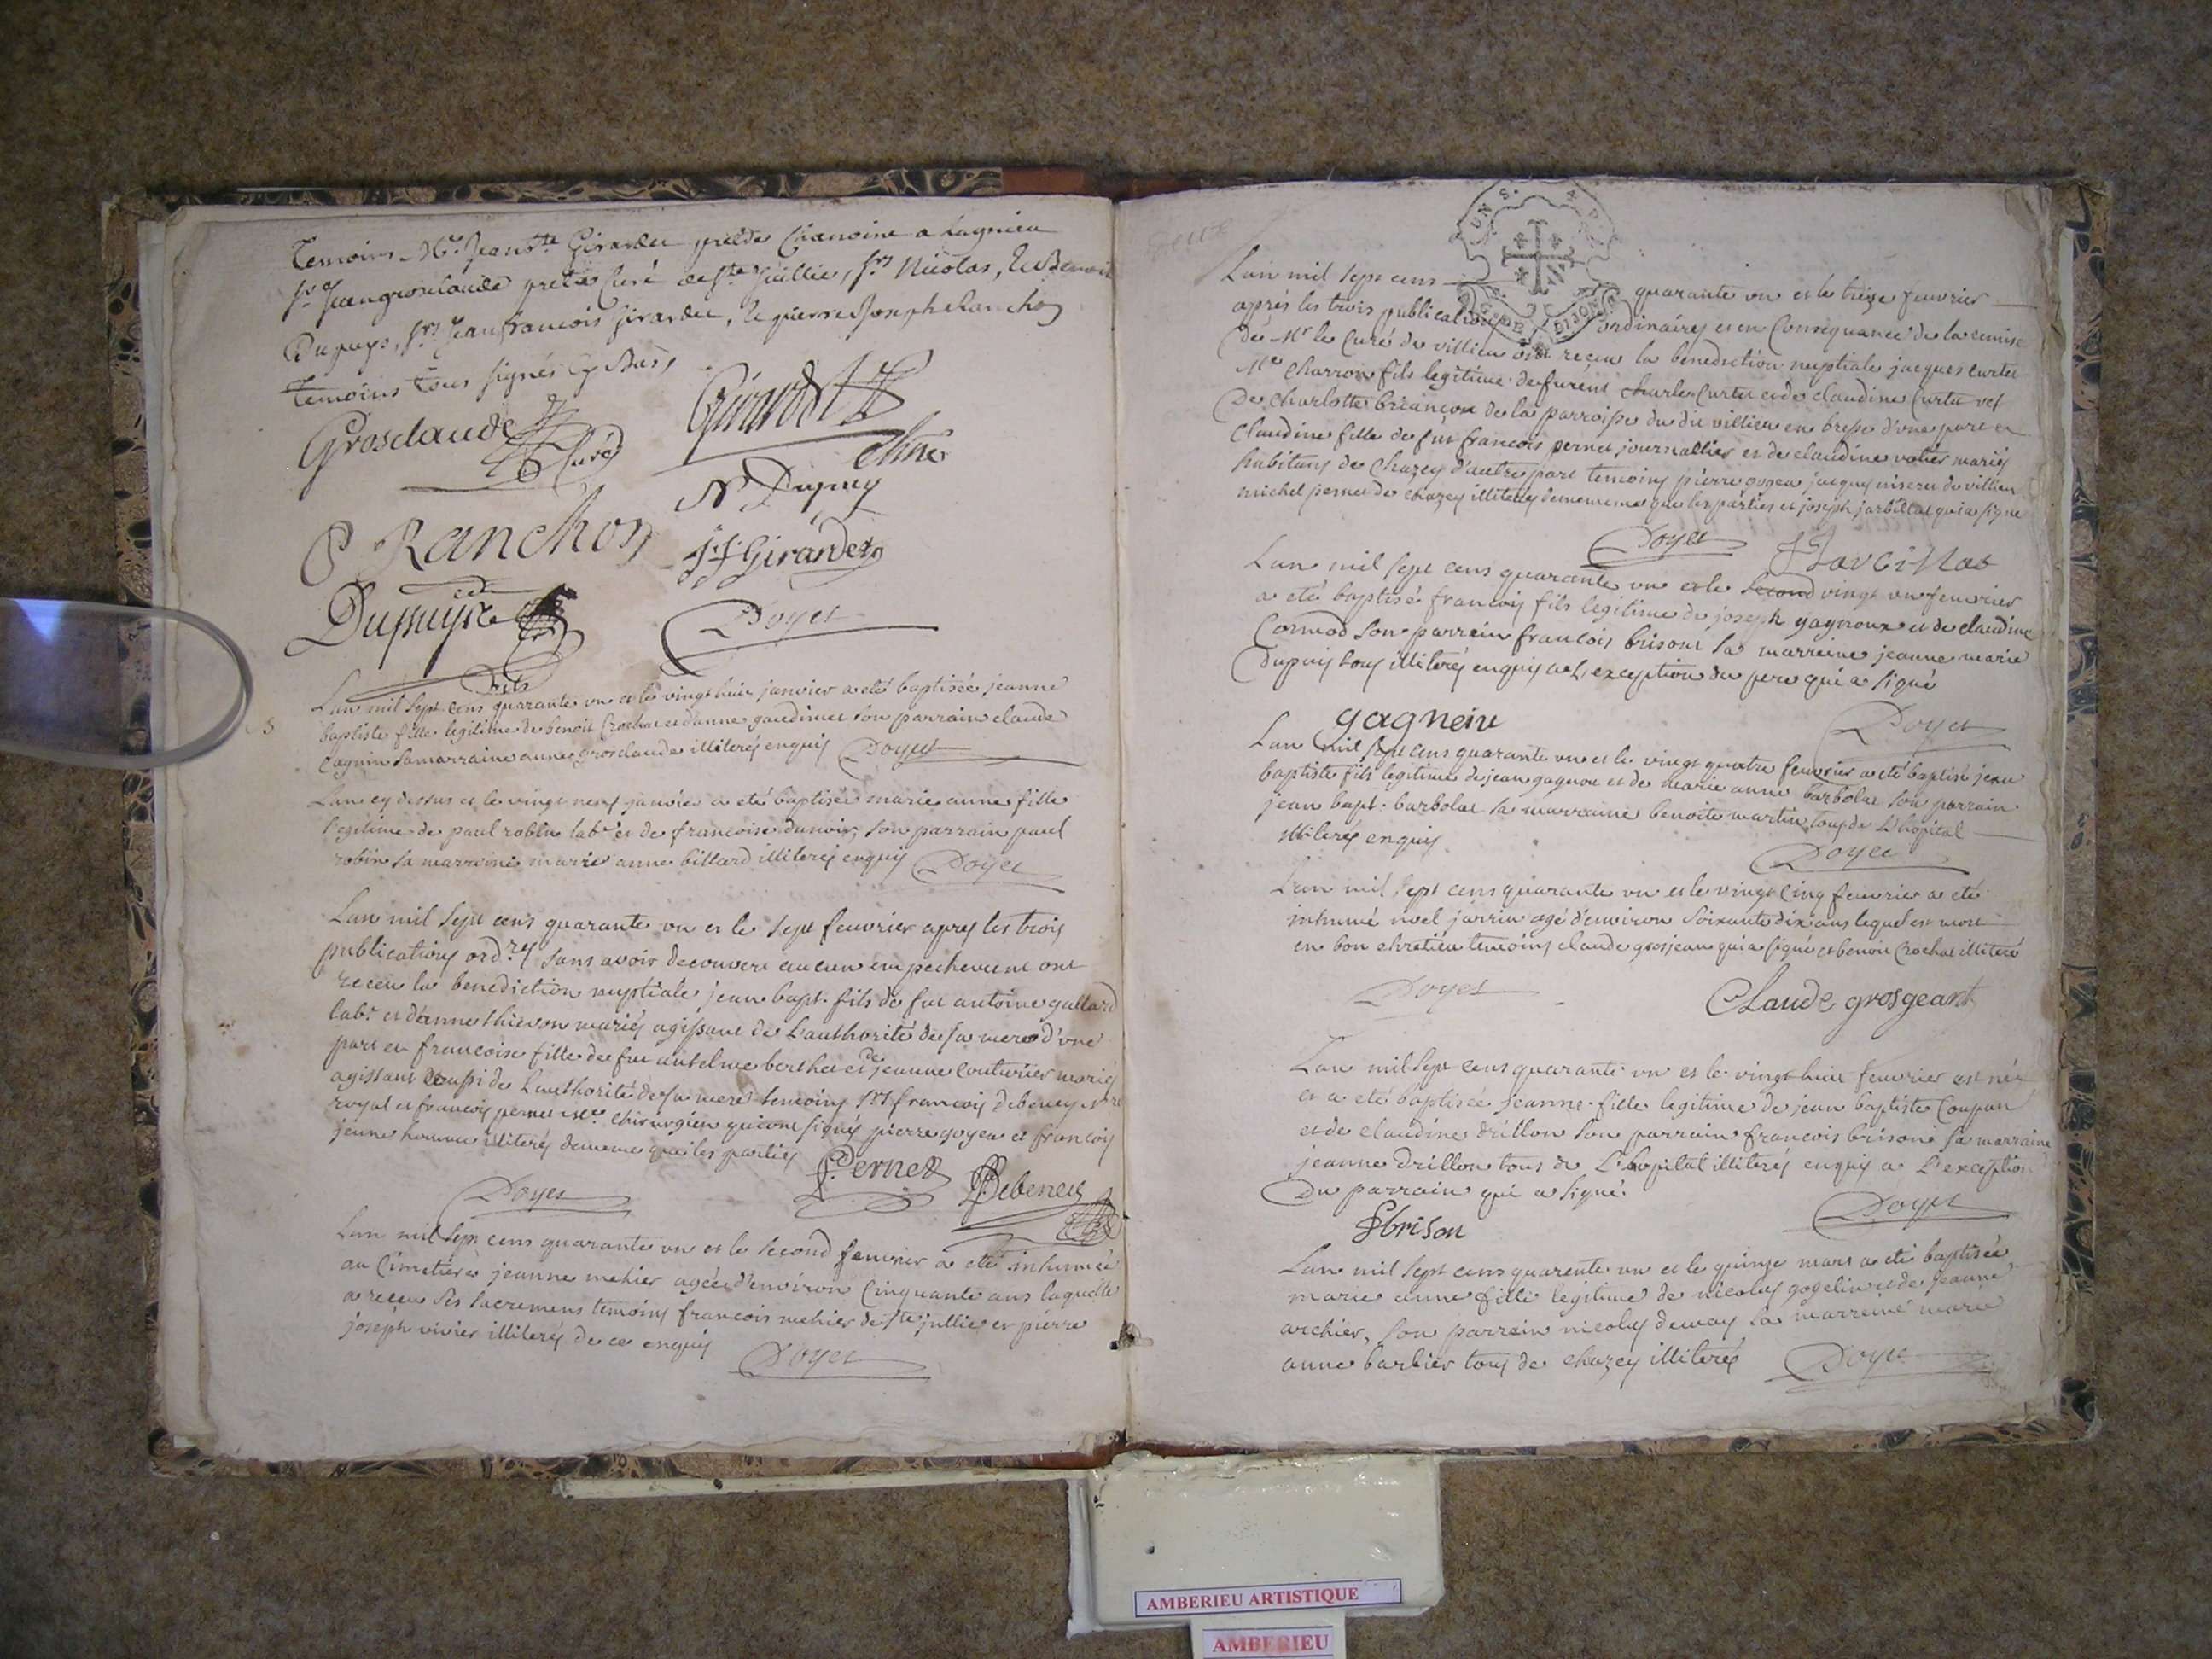 Temoins Mre Jean bte Girardet pretre Chanoine a Lagnieu
sr Jean grosclaude pretre Curé de ste Jullie, srs Nicolas, & Benoit
Dupuys, srs Jean francois girardet, & pierre Joseph Ranchon
temoins tous signés cy Bas,
Grosclaude Curé
Girardet
chne
N Dupuy
P Ranchon
JF Girardet
Dupuys
Doyet
Lan mil sept cens quarante un et le vingt huit janvier a eté baptisée jeanne
baptiste fille legitime de benoit Crochat et danne gaudimet son parrain claude
Cagnin sa marraine anne grosclaude illiterés enquis Doyet
Lan cy dessus et le vingt neuf janvier a eté baptisée marie anne fille
legitime de paul robin labr et de francoise dunoir, son parrain paul
robin sa marraine marie anne billard illiterés enquis Doyet
Lan mil sept cens quarante un et le sept feuvrier apres les trois
publications ordres sans avoir decouvert aucun empechement ont
receu la benediction nuptiale jean bapt. fils de feu antoine gallard
labr et danne thievon mariés agissant de L'authorité de sa mere d'une
part et francoise fille de feu antelme berthet et de jeanne Couturier mariés
agissant aussi de L'authorité de sa mere temoins sr francois debeney Nre
royal et francois pernet Me chirurgien qui ont signés pierre goyet et francois
jeune homme illiterés de meme que les parties
Pernet
Debeney
Doyet
Lan mil sept cens quarante un et le second feuvrier a eté inhumée
au Cimetiere jeanne mehier agée d'environ Cinquante ans laquelle
a receu ses sacremens temoins francois mehier de ste jullie et pierre
joseph vivier illiterés de ce enquis Doyet
Lan mil sept cens quarante un et le treize feuvrier
aprés les trois publications ordinaires et en Consequance de la remise
de Mr le Curé de villieu ont receu la benediction nuptiale jacques curtet
Me Charron fils legitime de furent Charles Curtet et de claudine Curtet vef
De Charlotte briançon de la parroisse du dit villieu en bresse d'une part et
Claudine fille de feu francois pernet journallier et de claudine vatier mariés
habitans de Chazey d'autre part temoins pierre goyet jacques de villieu
michel pernet de chazey illiterés de meme que les parties et joseph jarbillat qui a signé
Doyet
Jarbillat
Lan mil sept cens quarante un et le second vingt un feuvrier
a eté baptisé francois fils legitime de joseph gagnoux et de claudine
Cormod son parrain francois brison sa marraine jeanne marie
Dupuis tous illiterés enquis a L'exception du pere qui a signé
gagneiu
Doyet
Lan mil sept cens quarante un et le vingt quatre feuvrier a eté baptisé jean
baptiste fils legitime de jean gagnou et de marie anne barbolat son parrain
jean bapt. barbolat sa marraine benoite martin tous de L'hopital
illiterés enquis
Doyet
Lan mil sept cens quarante un et le vingt cinq feuvrier a eté
inhumé noel jarrin agé d'environ Soixante dix ans lequel est mort
en bon chretien temoins claude grosjean qui a signé et benoit Crochat illiteré
Doyet
Claude grosgeant
Lan mil sept cens quarante un et le vingt huit feuvrier est née
et a eté baptisée jeanne fille legitime de jean baptiste Coupan
et de claudine drillon son parrain francois brison sa marraine
jeanne Drillon tous de L'hopital illiterés enquis a L'exception
Du parrain qui a signé.
fbrison
Doyet
Lan mil sept cens quarente un et le quinze mars a eté baptisée
marie anne fille legitime de nicolas gogelin et de jeanne
archier, son parrain nicolas demay sa marreine marie
anne barbier tous de chazey illiterés Doyet
AMBERIEU ARTISTIQUE
AMBERIEU